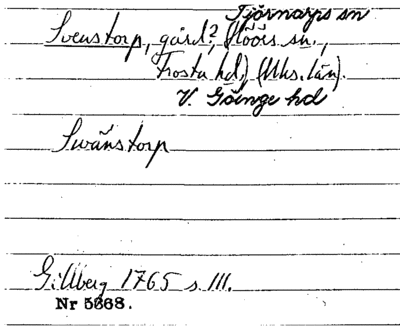 Tjörnarps sn
Svenstorp, gård?, Höörs sn.,
Frosta hd, (Mhs. län).
V. Göinge hd
Swänstorp
Gillberg 1765 s. 111.
Nr 5668.